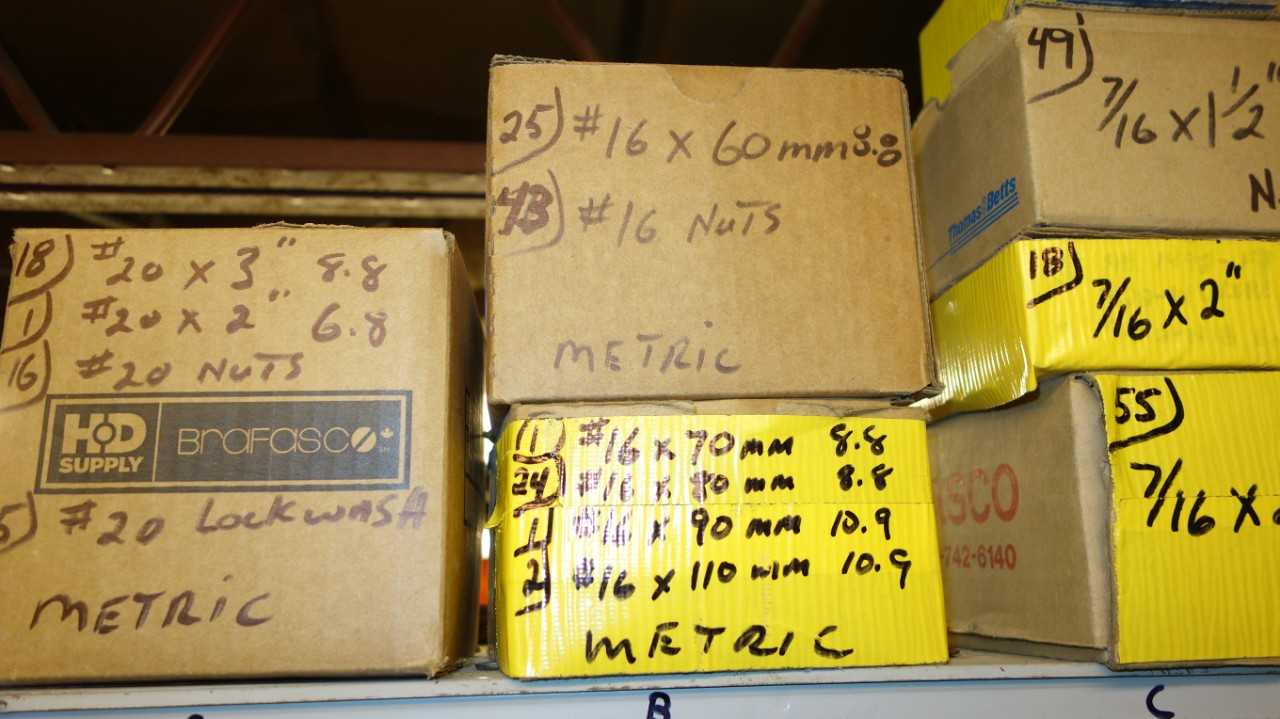 18) #20 x 3" 8.8
1) #20 x 2" 6.8
16) #20 NUTS
HD SUPPLY BRAFASCO
5) #20 LOCKWASH
METRIC
25) #16 x 60mm 8.8
43) #16 NUTS
METRIC
1) #16 x 70mm 8.8
24) #16 x 80 mm 8.8
1) #16 x 90 mm 10.9
2) #16 x 110 mm 10.9
METRIC
49) 7/16 x 1 1/2"
N
Thomas&Betts
18) 7/16 x 2"
55) 7/16 x
SCO
-742-6140
B
C